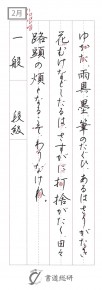 2月
ゆかた、雨具、墨、筆のたぐひ、あるはさりがたき
花むけなどしたるは、さすがに打捨がたくて、
路頭の煩となるこそわりなけれ
一般 段級
書道総研